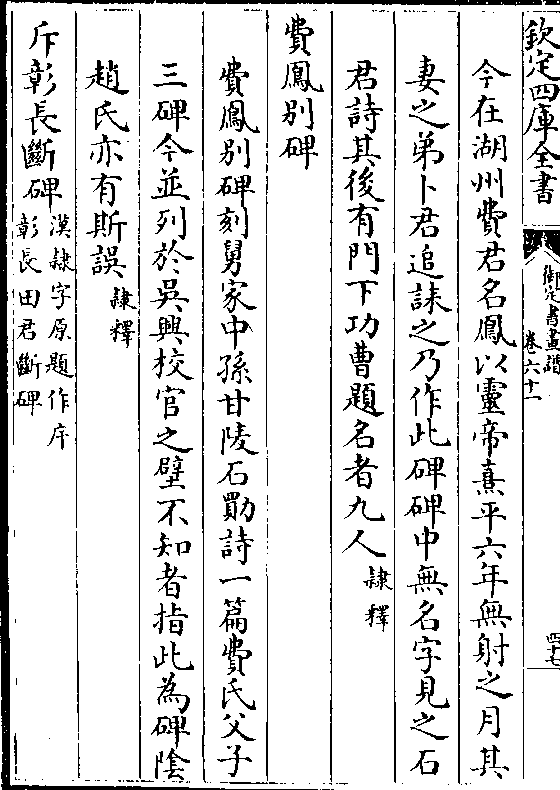 欽定四庫全書
御定書畫譜
卷六十一
四十七
今在湖州費君名鳳以靈帝熹平六年無射之月其
妻之弟卜君追誄之乃作此碑碑中無名字見之石
君詩其後有門下功曹題名者九人隸釋
費鳳别碑
費鳳别碑刻舅家中孫甘陵石勛詩一篇費氏父子
三碑今並列於吳興校官之壁不知者指此為碑陰
趙氏亦有斯誤隸釋
斥彰長斷碑漢隸字原題作斥
彰長田君斷碑